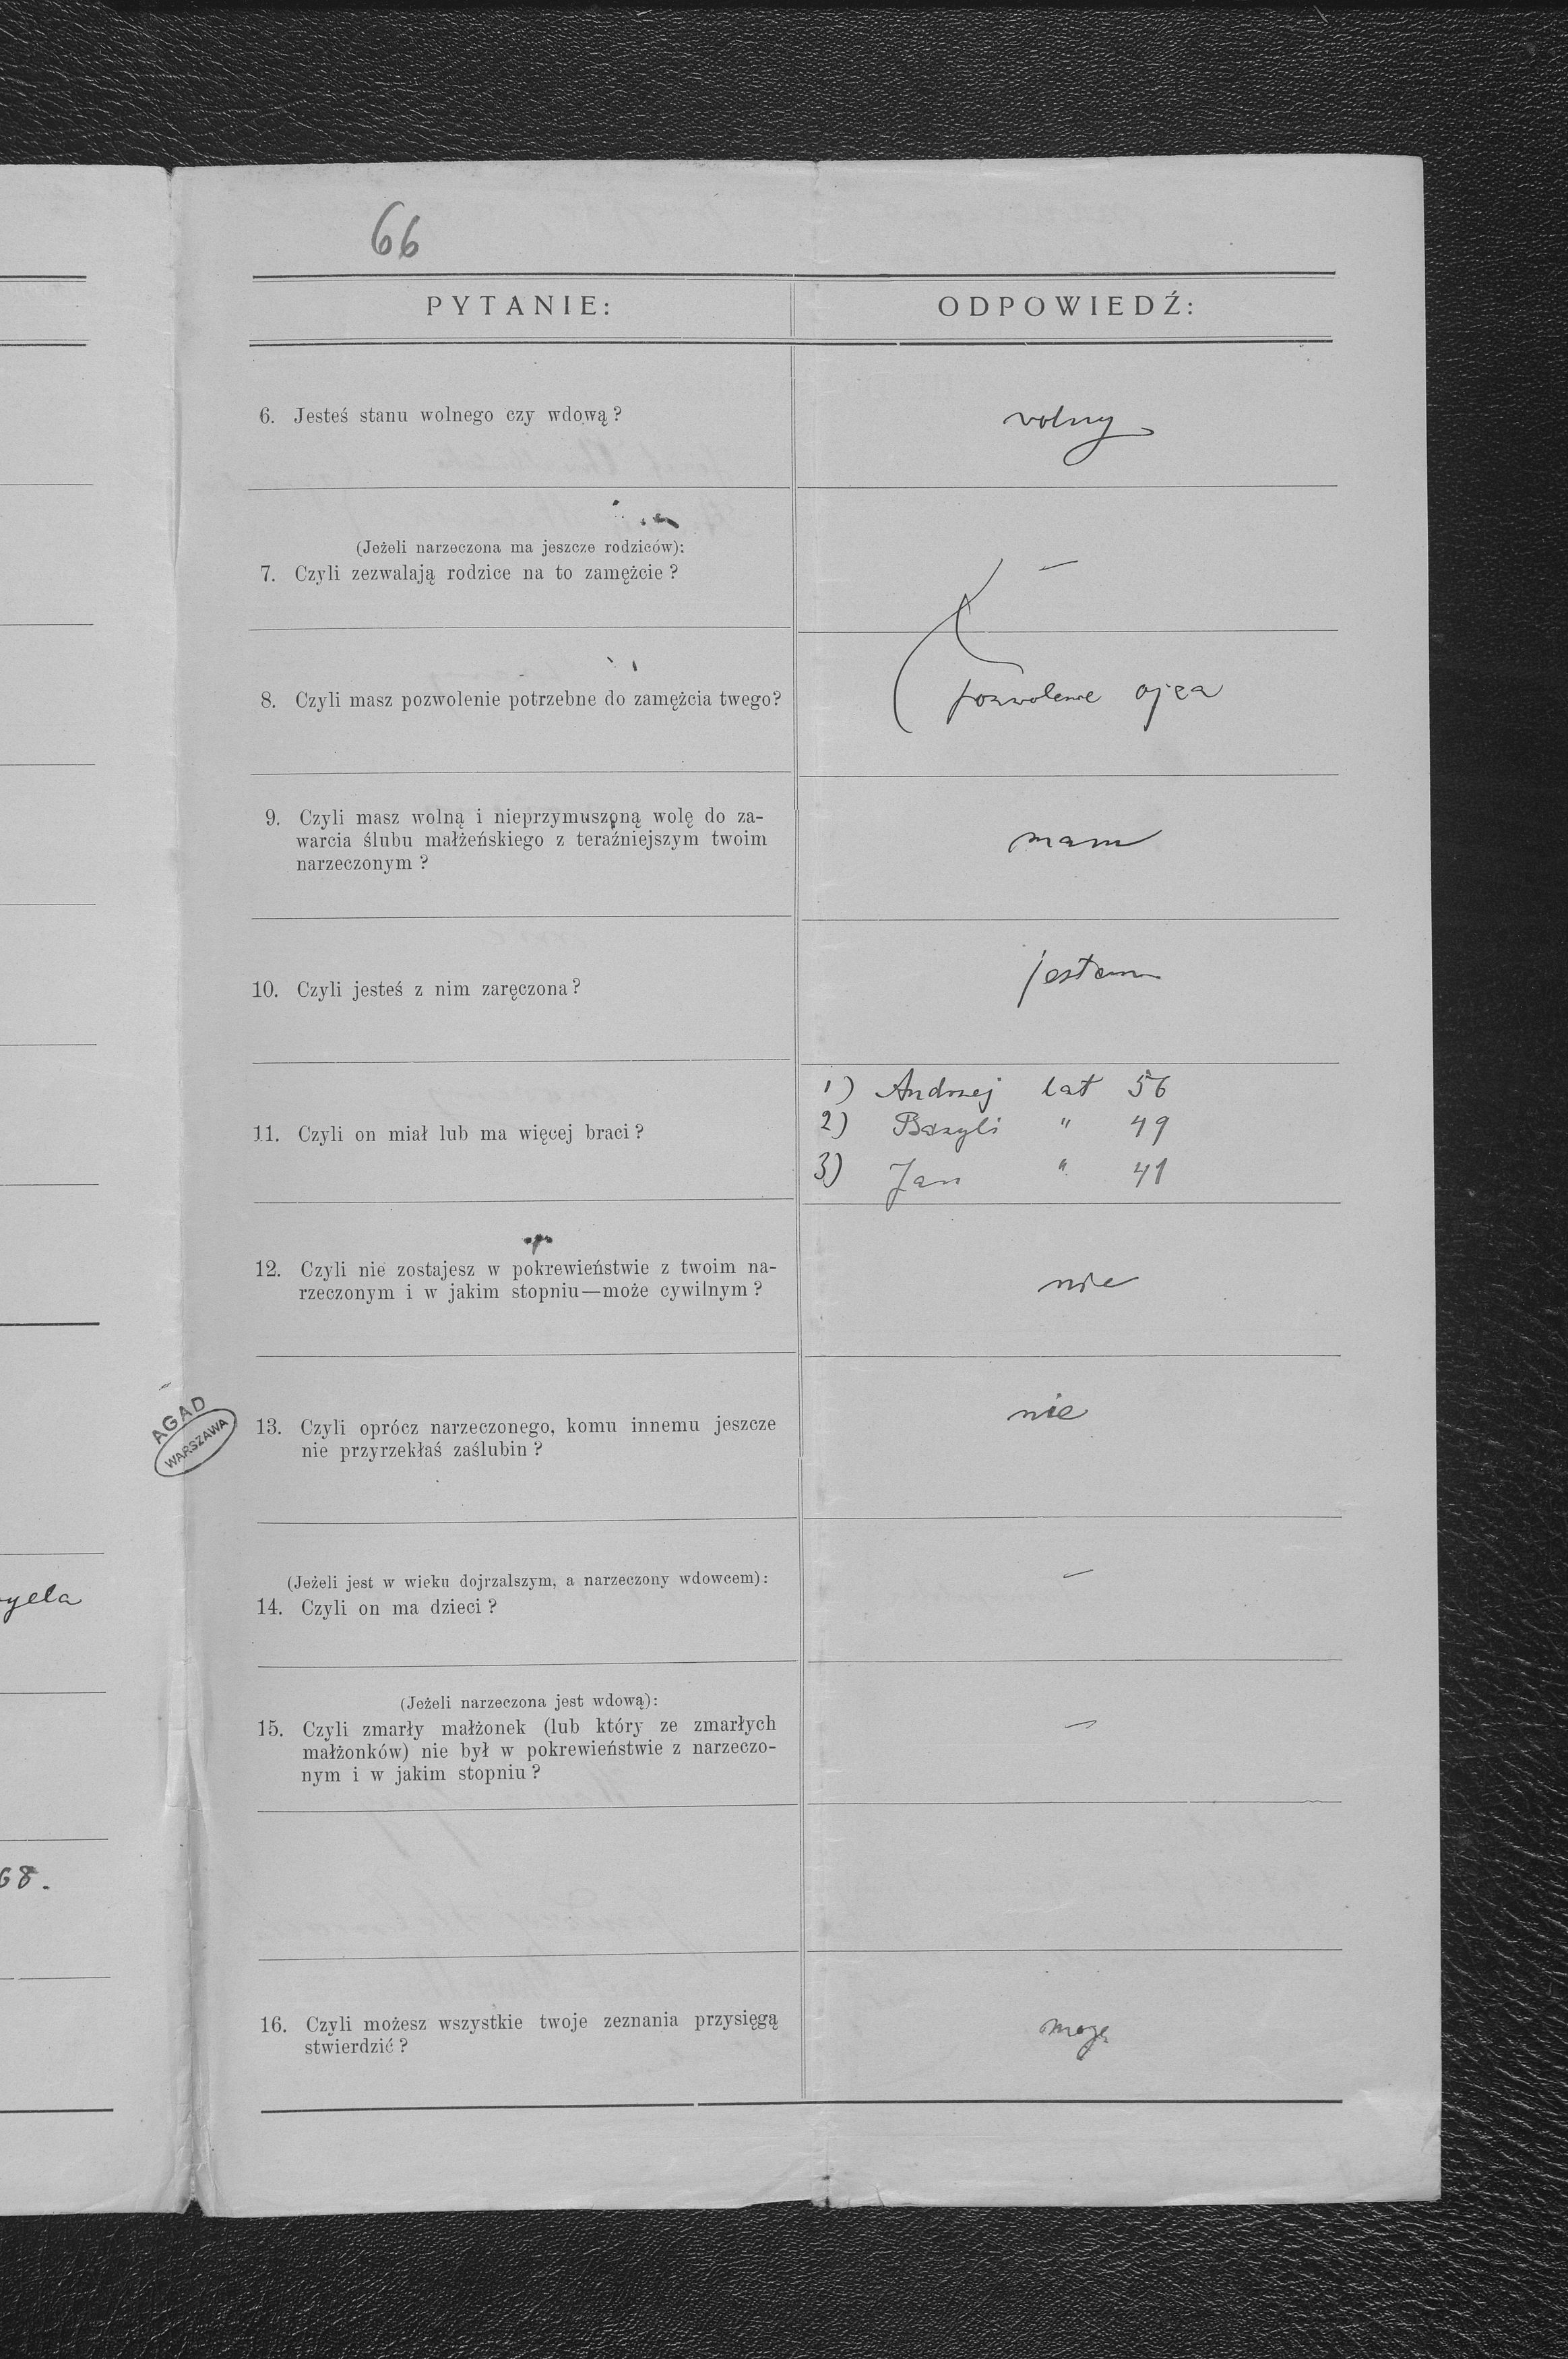 66
PYTANIE:
ODPOWIEDŹ:
6. Jesteś stanu wolnego czy wdową?
wolny
(Jeżeli narzeczona ma jeszcze rodziców):
7. Czyli zezwalają rodzice na to zamężcie?
—
8. Czyli masz pozwolenie potrzebne do zamężcia twego?
pozwolenie ojca
9. Czyli masz wolną i nieprzymuszoną wolę do za-
warcia ślubu małżeńskiego z teraźniejszym twoim
narzeczonym?
mam
10. Czyli jesteś z nim zaręczona?
jestem
11. Czyli on miał lub ma więcej braci?
1) Andrzej lat 56
2) Bazyli " 49
3) Jan " 41
12. Czyli nie zostajesz w pokrewieństwie z twoim na-
rzeczonym i w jakim stopniu—może cywilnym?
nie
AGAD
WARSZAWA
13. Czyli oprócz narzeczonego, komu innemu jeszcze
nie przyrzekłaś zaślubin?
nie
(Jeżeli jest w wieku dojrzalszym, a narzeczony wdowcem):
14. Czyli on ma dzieci?
—
(Jeżeli narzeczona jest wdową):
15. Czyli zmarły małżonek (lub który ze zmarłych
małżonków) nie był w pokrewieństwie z narzeczo-
nym i w jakim stopniu?
—
68.
16. Czyli możesz wszystkie twoje zeznania przysięgą
stwierdzić?
mogę